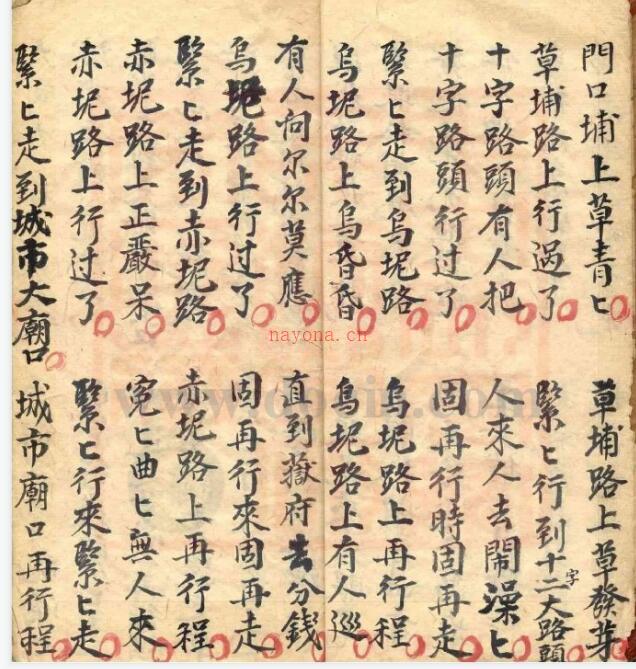 門口埔上草青匕
草埔路上草發芽
草埔路上行過了
緊匕行到十二大路頭
字
十字路頭有人把
人來人去鬧澡匕
十字路頭行过了
固再行時固再走
緊匕走到烏坭路
烏坭路上再行程
烏坭路上烏昏昏
烏坭路上有人巡
有人问尔尔莫應
直到嶽府去分錢
烏坭路上行过了
固再行來固再走
緊匕走到赤坭路
赤坭路上再行程
赤坭路上正嚴呆
冤匕曲匕無人來
赤坭路上行过了
緊匕行來緊匕走
緊匕走到城市大廟口
城市廟口再行程
nayona.cn